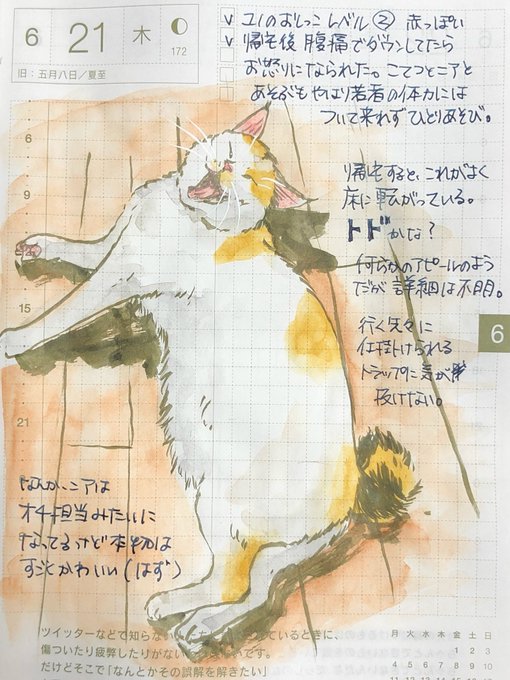 6 21 木 172
旧：五月八日／夏至
v ユノのおしっこ レベル② 赤っぽい
v 帰宅後 腹痛でダウンしてたら
お怒りになられた。こてつとニアと
あそぶもやはり若者の体力には
ついて来れずひとりあそび。
帰宅すると、これがよく
床に転がっている。
トドかな？
何らかのアピールのよう
だが 詳細は不明。
行く先々に
仕掛けられる
トラップに気が
抜けない。
6
6
9
15
21
なんか、ニアは
オチ担当みたいに
なってるけど本物は
すごくかわいい（はず）
ツイッターなどで知らない
ているときに、
傷ついたり疲弊したりがない
です。
だけどそこで「なんとかその誤解を解きたい」
月 火 水 木 金 土 日
1 2 3
4 5 6 7 8 9 10
11